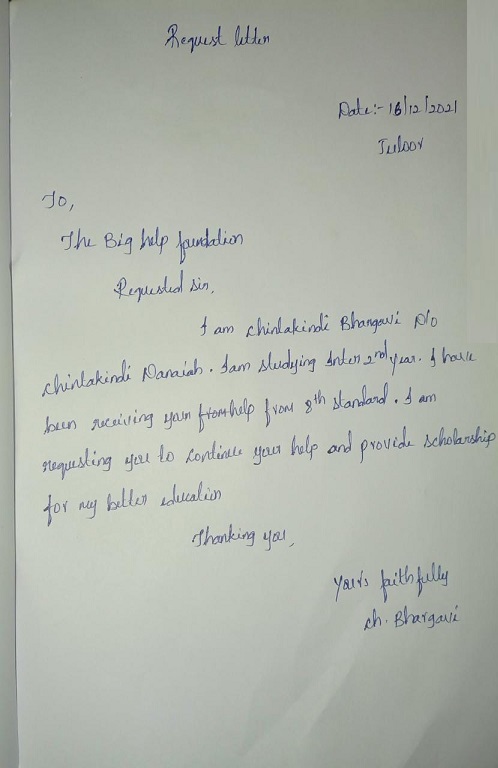 Request letter
Date:- 16/12/2021
Tuloor
To,
The Big help foundation
Requested sir,
I am chintakindi Bhargavi D/o
chintakindi Danaiah. I am studying Inter 2nd year. I have
been receiving your from help from 8th standard. I am
requesting you to continue your help and provide scholarship
for my better education
Thanking you,
yours faithfully
ch. Bhargavi